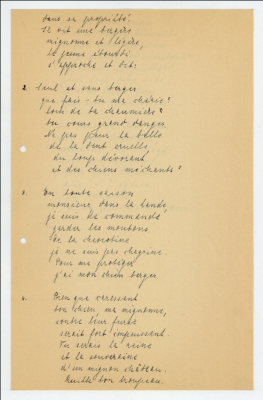 dans sa propriété,
Il vit une bergère
mignonne et légère,
le jeune étourdi
s'approche et dit:
2. Seule et sans berger
que fais-tu ma chérie?
loin de ta chaumière
tu cours grand danger.
N'as pas peur la belle
de la dent cruelle,
du loup dévorant
et des chiens méchants?
3. En toute saison
monsieur, dans la lande,
je suis de commande,
garder les moutons
de la
je ne suis pas chagrine
Pour me protéger
j'ai mon chien berger.
4. Bien que caressant
ton chien, ma mignonne,
contre leur
serait fort impuissant.
Tu serais la reine
et la souveraine
d'un mignon château.
Quitte ton troupeau.